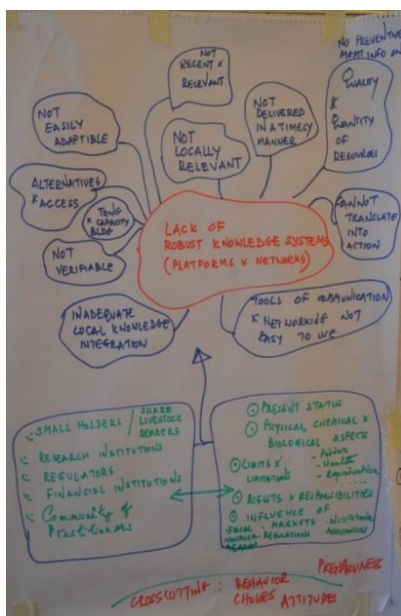 NO PREVENTIVE
MGMT INFO ON
QUALITY
&
QUANTITY
OF
RESOURCES
NOT
RECENT &
RELEVANT
NOT
DELIVERED
IN A TIMELY
MANNER
NOT
EASILY
ADAPTIBLE
NOT
LOCALLY
RELEVANT
ALTERNATIVES
& ACCESS
TRNG
& CAPACITY
BLDG
NOT
VERIFIABLE
CANNOT
TRANSLATE
INTO
ACTION
LACK OF
ROBUST KNOWLEDGE SYSTEMS
(PLATFORMS & NETWORKS)
INADEQUATE
LOCAL KNOWLEDGE
INTEGRATION
TOOLS OF COMMUNICATION
& NETWORKING NOT
EASY TO USE
SMALL HOLDERS / SHARE
LIVESTOCK
REARERS
RESEARCH INSTITUTIONS
REGULATORS
FINANCIAL INSTITUTIONS
Community of
Practitioners
PRESENT STATUS
PHYSICAL, CHEMICAL &
BIOLOGICAL ASPECTS
LIMITS &
LIMITATIONS
- Health
- Reproduction
....
RIGHTS & RESPONSIBILITIES
INFLUENCE OF
MARKETS
- REGULATIONS
PREPAREDNESS
CROSSCUTTING : BEHAVIOR
CHOICES ATTITUDES